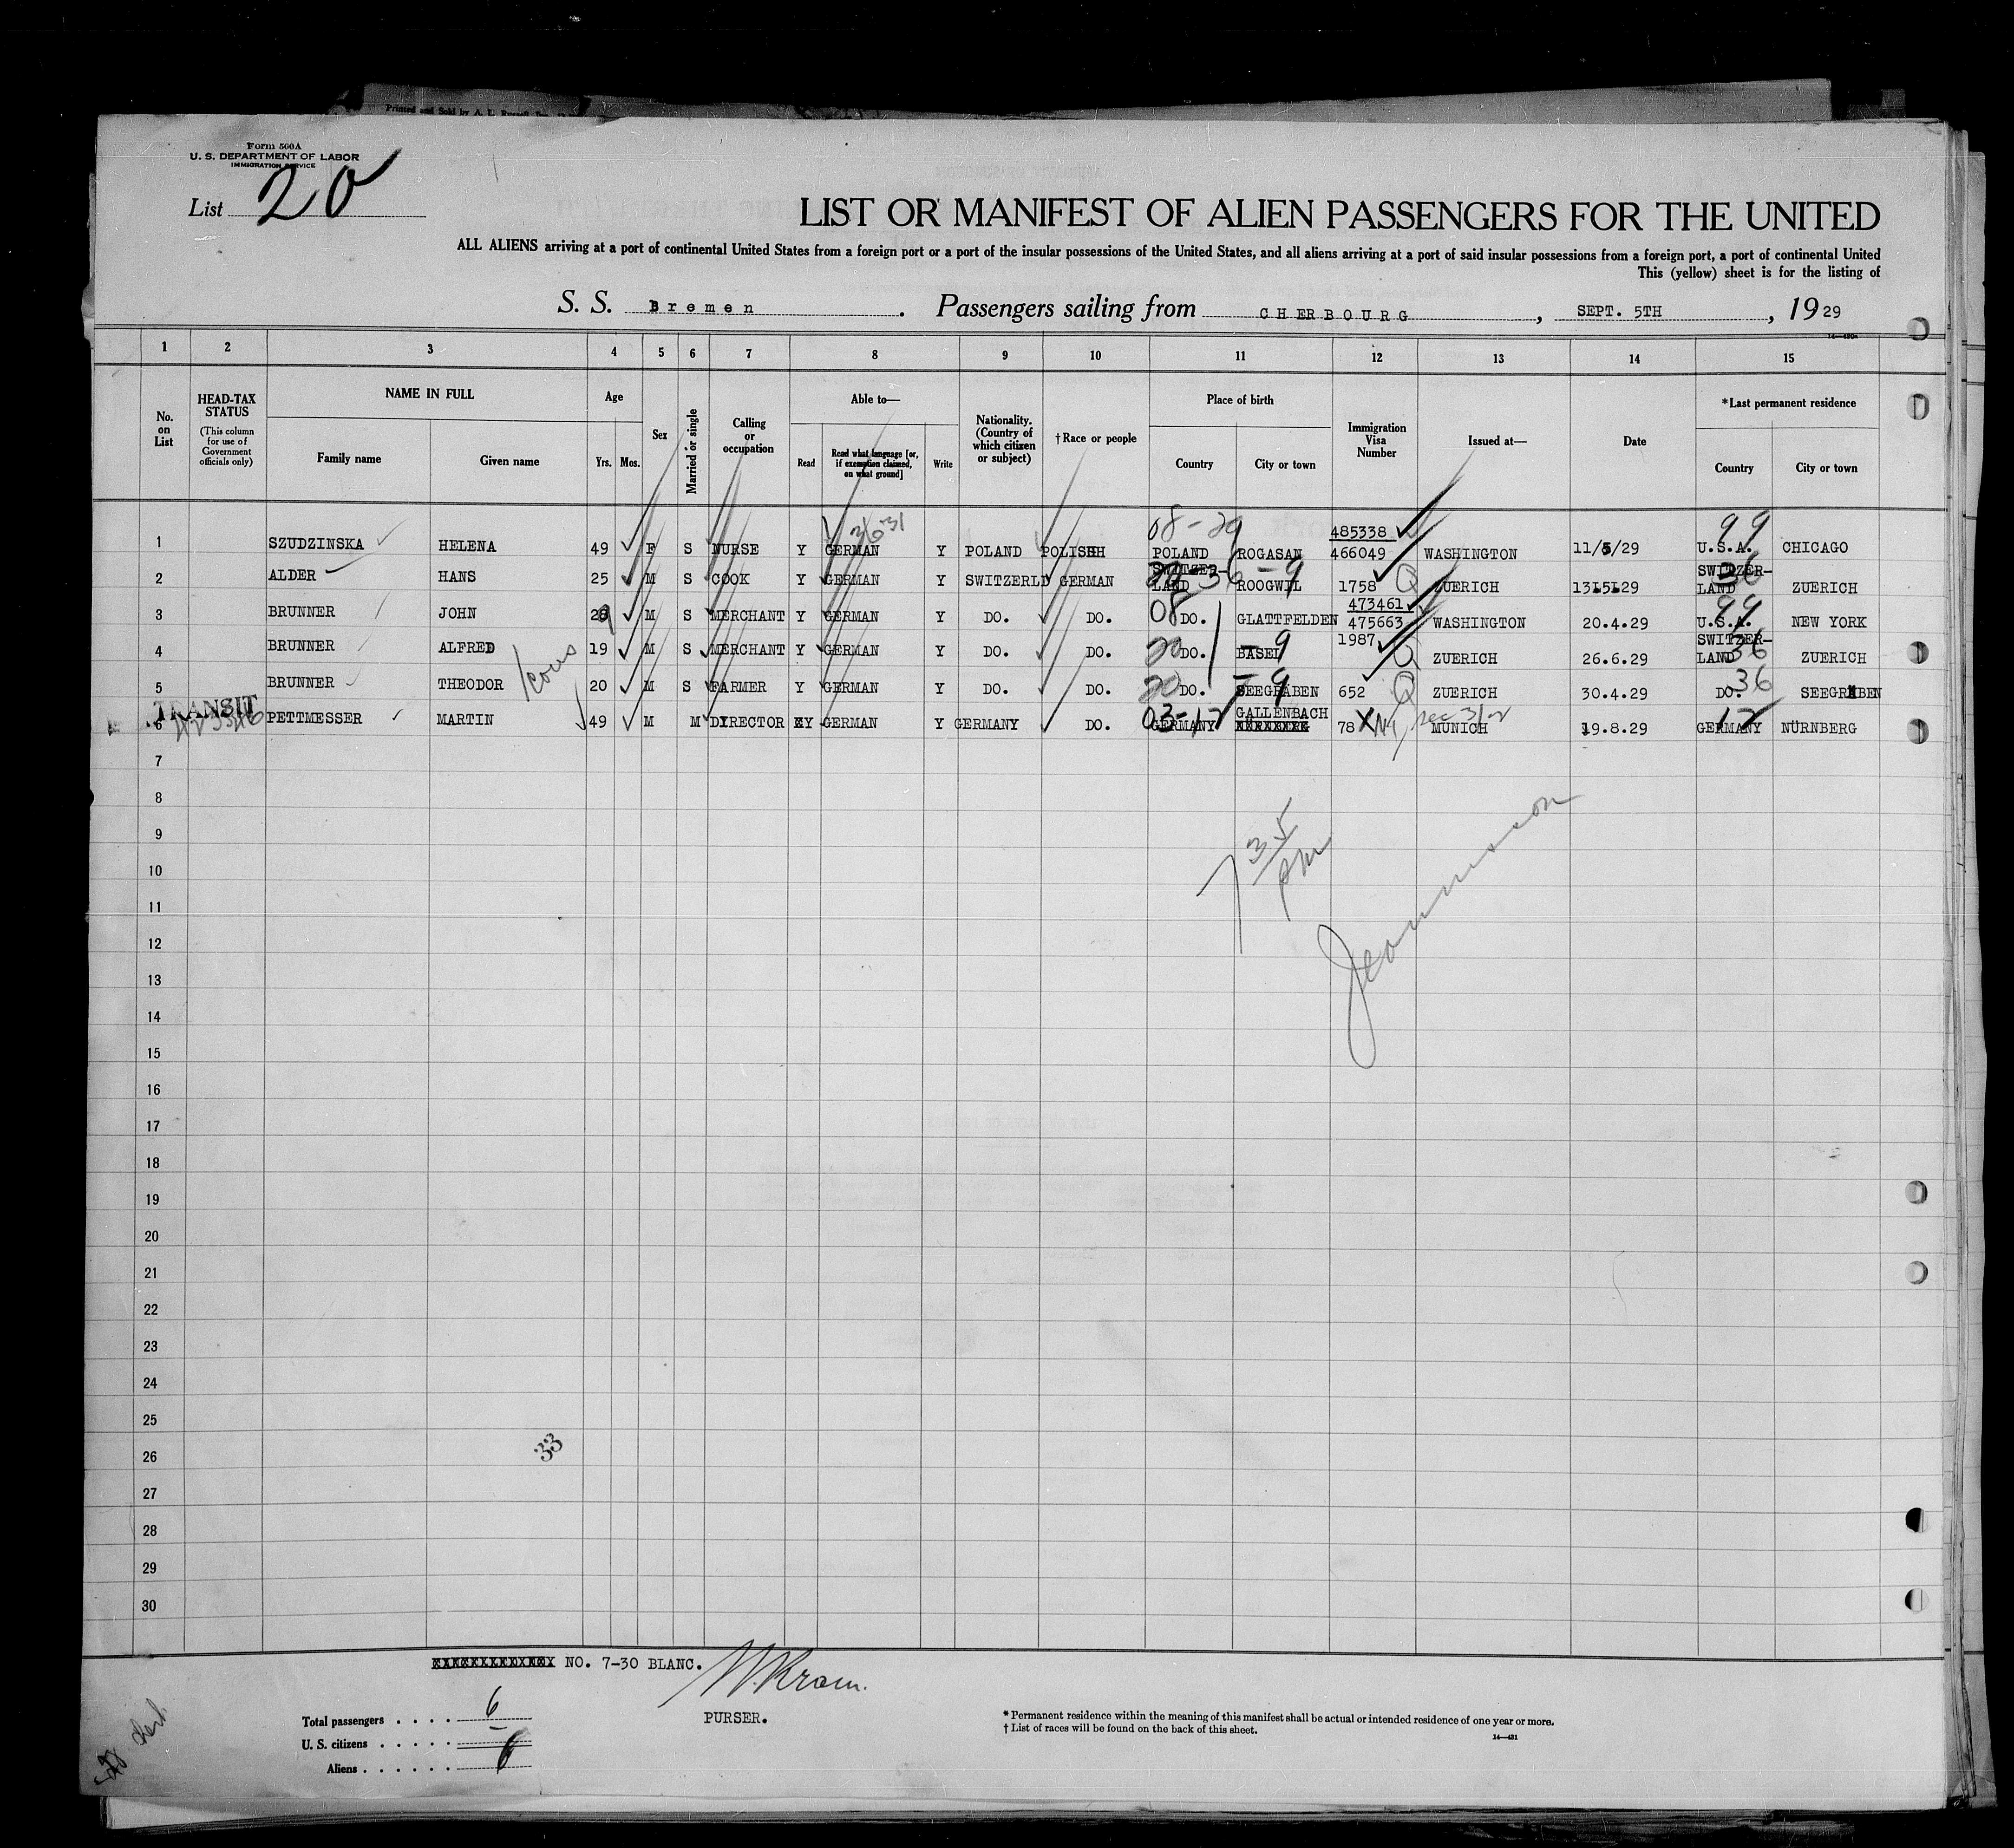 Printed and Sold by A. L.
Form 500A
U. S. DEPARTMENT OF LABOR
IMMIGRATION SERVICE
List 20
LIST OR MANIFEST OF ALIEN PASSENGERS FOR THE UNITED
ALL ALIENS arriving at a port of continental United States from a foreign port or a port of the insular possessions of the United States, and all aliens arriving at a port of said insular possessions from a foreign port, a port of continental United
This (yellow) sheet is for the listing of
S. S. Bremen. Passengers sailing from CHERBOURG, SEPT. 5TH, 1929
1 2 3 4 5 6 7 8 9 10 11 12 13 14 15
No. on List
HEAD-TAX STATUS
(This column for use of Government officials only)
NAME IN FULL
Family name Given name
Age
Yrs. Mos.
Sex
Married or single
Calling or occupation
Able to—
Read Read what language [or, if exemption claimed, on what ground] Write
Nationality. (Country of which citizen or subject)
†Race or people
Place of birth
Country City or town
Immigration Visa Number
Issued at—
Date
*Last permanent residence
Country City or town
36-31 08-29 485338 99
1 SZUDZINSKA HELENA 49 F S NURSE Y GERMAN Y POLAND POLISH POLAND ROGASAN 466049 WASHINGTON 11/5/29 U.S.A. CHICAGO
2 ALDER HANS 25 M S COOK Y GERMAN Y SWITZERLD GERMAN SWITZER-LAND ROOGWIL 1758 Q ZUERICH 13.5.29 SWITZER-LAND 36 ZUERICH
473461
3 BRUNNER JOHN 29 M S MERCHANT Y GERMAN Y DO. DO. 08 DO. GLATTFELDEN 475663 WASHINGTON 20.4.29 U.S.A. 99 NEW YORK
4 BRUNNER ALFRED 19 M S MERCHANT Y GERMAN Y DO. DO. 20 DO. BASEL -9 1987 Q ZUERICH 26.6.29 SWITZER-LAND 36 ZUERICH
cous
5 BRUNNER THEODOR 20 M S FARMER Y GERMAN Y DO. DO. 20 DO. SEEGRÄBEN -9 652 Q ZUERICH 30.4.29 DO. 36 SEEGRÄBEN
TRANSIT
6 PETTMESSER MARTIN 49 M M DIRECTOR Y GERMAN Y GERMANY DO. 03-17 GERMANY GALLENBACH 78 sec 3/2 MUNICH 19.8.29 GERMANY 17 NÜRNBERG
7
8
9
7 35 pm
10
11
12
13
14
15
16
17
18
19
20
21
22
23
24
25
26
33
27
28
29
30
NO. 7-30 BLANC.
PURSER.
Total passengers . . . . 6
U. S. citizens . . . . . –
Aliens . . . . . . 6
* Permanent residence within the meaning of this manifest shall be actual or intended residence of one year or more.
† List of races will be found on the back of this sheet.
14—431